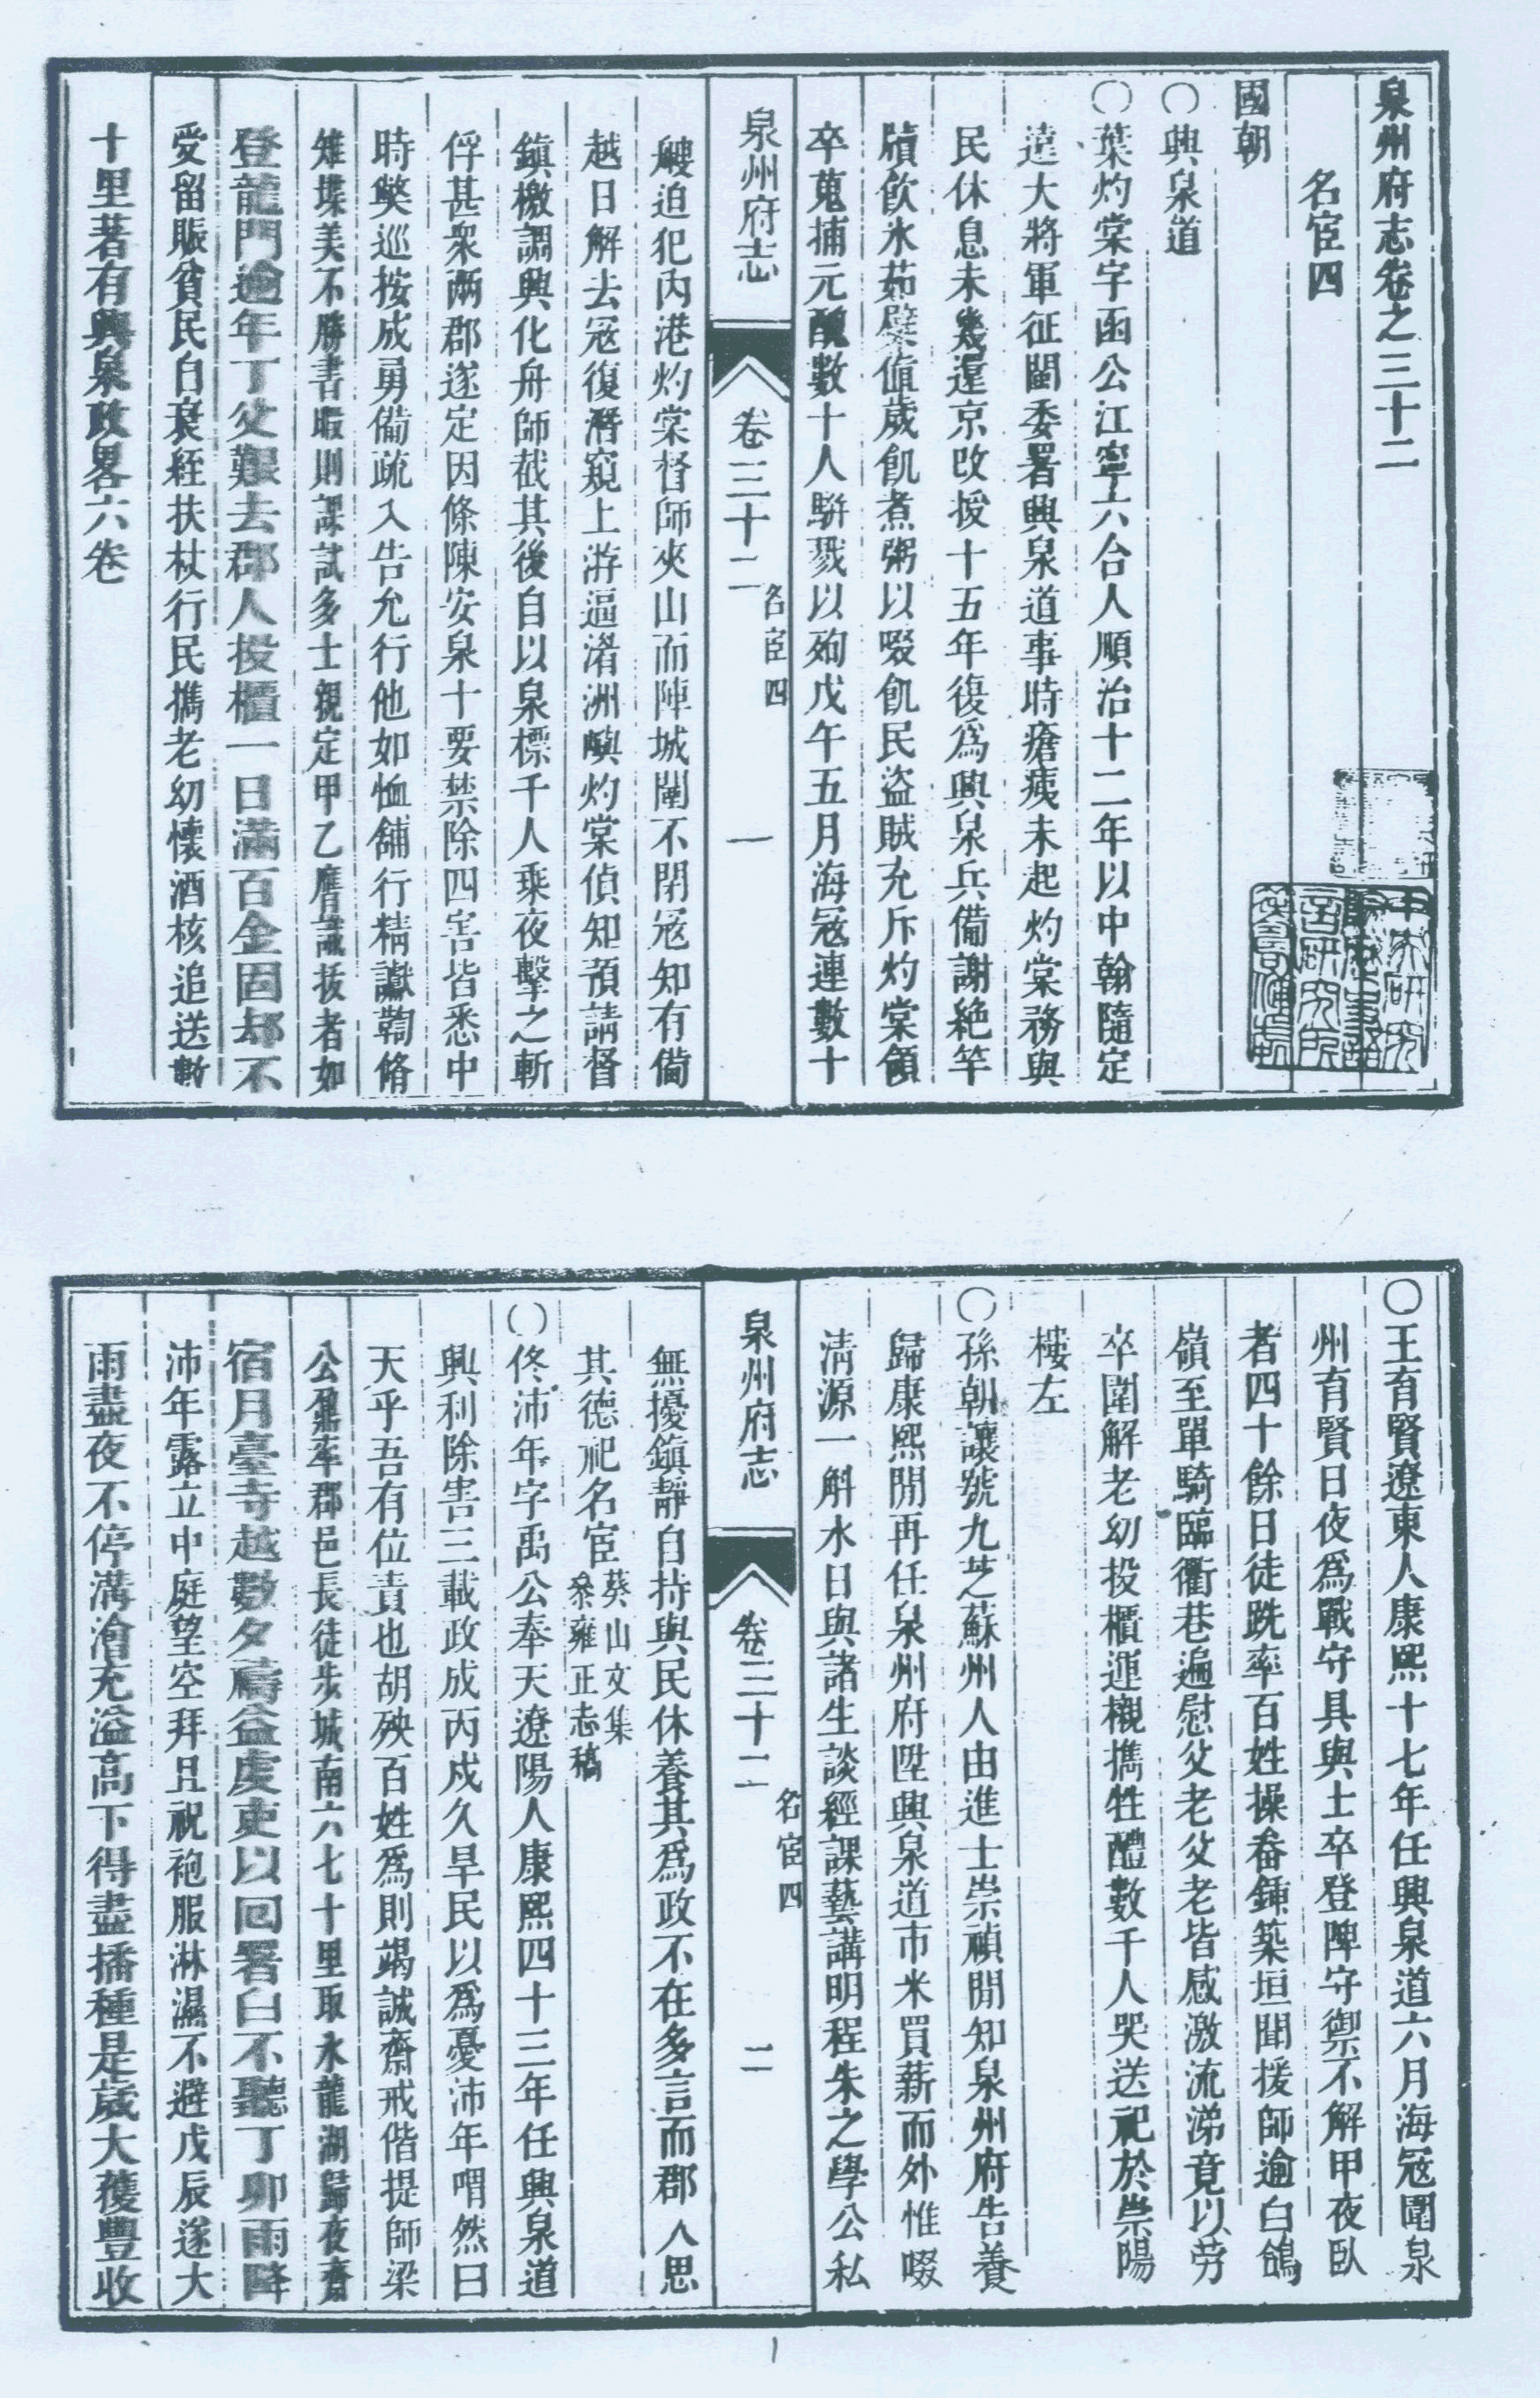 泉州府志卷之三十二
名宦四
國朝
〇興泉道
〇葉灼棠字函公江寧六合人順治十二年以中翰隨定
遠大將軍征閩委署興泉道事時瘡痍未起灼棠務與
民休息未幾還京改授十五年復爲興泉兵備謝絶竿
牘飮氷茹櫱値歲飢煮粥以啜飢民盜賊充斥灼棠領
卒蒐捕元醜數十人駢戮以殉戊午五月海寇連數十
泉州府志
卷三十二
名宦四
一
艘迫犯內港灼棠督師夾山而陣城闉不閉寇知有備
越日解去寇復潛窺上游逼渚洲嶼灼棠偵知預請督
鎮檄調興化舟師截其後自以泉標千人乘夜擊之斬
俘甚衆兩郡遂定因條陳安泉十要禁除四害皆悉中
時獘巡按成勇備疏入告允行他如恤舖行精讞鞫脩
雉堞美不勝書暇則課試多士親定甲乙膺識拔者如
登龍門逾年丁父艱去郡人投櫃一日滿百金固却不
受留賑貧民白衰絰扶杖行民攜老幼懷酒核追送數
十里著有興泉政畧六卷
〇王育賢遼東人康熙十七年任興泉道六月海寇圍泉
州育賢日夜爲戰守具與士卒登陴守禦不解甲夜臥
者四十餘日徒跣率百姓操畚鍤築垣聞援師逾白鴿
嶺至單騎臨衢巷遍慰父老父老皆感激流涕竟以勞
卒圍解老幼投櫃運櫬攜牲醴數千人哭送祀於崇陽
樓左
〇孫朝讓號九芝蘇州人由進士崇禎間知泉州府告養
歸康熙間再任泉州府陞興泉道市米買薪而外惟啜
淸源一斛水日與諸生談經課藝講明程朱之學公私
泉州府志
卷三十二
名宦四
二
無擾鎮靜自持與民休養其爲政不在多言而郡人思
其德祀名宦
葵山文集
叅雍正志稿
〇佟沛年字禹公奉天遼陽人康熙四十三年任興泉道
興利除害三載政成丙戌久旱民以爲憂沛年喟然曰
天乎吾有位責也胡殃百姓爲則竭誠齋戒偕提師梁
公鼐率郡邑長徒步城南六七十里取水龍湖歸夜齋
宿月臺寺越數夕禱益虔吏以回署白不聽丁卯雨降
沛年露立中庭望空拜且祝袍服淋濕不避戊辰遂大
雨晝夜不停溝澮充溢高下得盡播種是歲大穫豐收